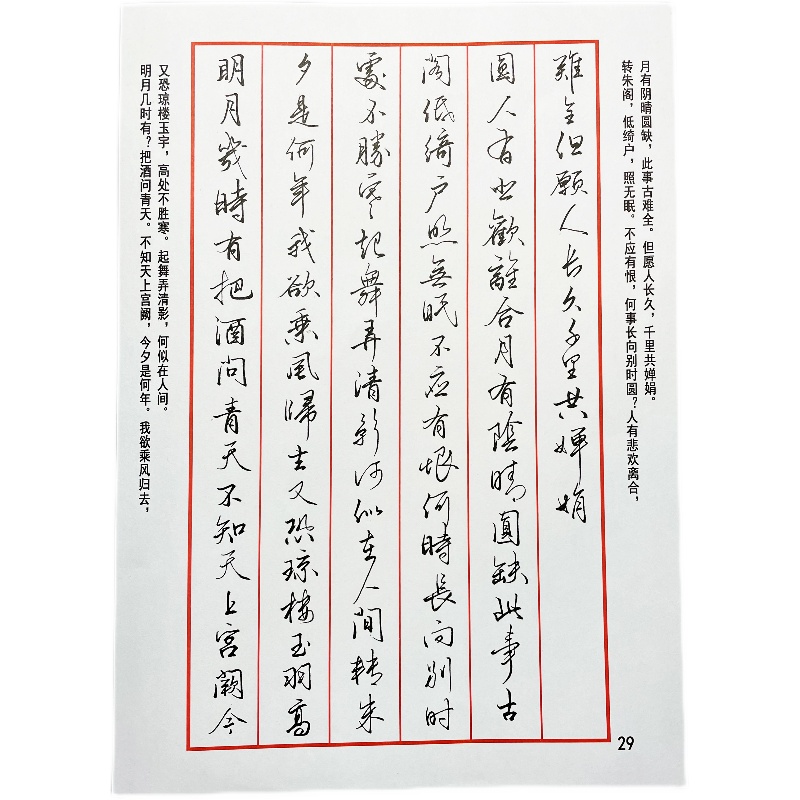 明月几时有？把酒问青天。不知天上宫阙，今夕是何年。我欲乘风归去，
又恐琼楼玉宇，高处不胜寒。起舞弄清影，何似在人间。
明月幾時有把酒問青天不知天上宮闕今
夕是何年我欲乘風歸去又恐琼樓玉羽高
處不勝寒起舞弄清影何似在人間轉朱
閣低綺户照無眠不应有恨何時長向别时
圓人有悲歡離合月有陰晴圓缺此事古
難全但願人长久千里共嬋娟
转朱阁，低绮户，照无眠。不应有恨，何事长向别时圆？人有悲欢离合，
月有阴晴圆缺，此事古难全。但愿人长久，千里共婵娟。
29